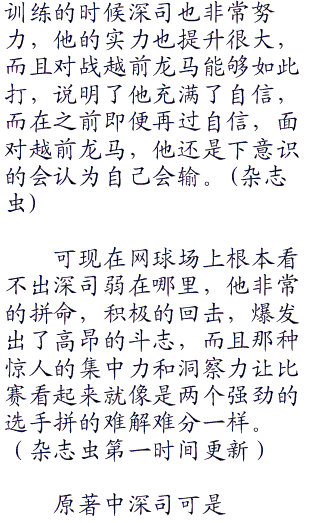 训练的时候深司也非常努
力，他的实力也提升很大，
而且对战越前龙马能够如此
打，说明了他充满了自信，
而在之前即便再过自信，面
对越前龙马，他还是下意识
的会认为自己会输。(杂志
虫)
可现在网球场上根本看
不出深司弱在哪里，他非常
的拼命，积极的回击，爆发
出了高昂的斗志，而且那种
惊人的集中力和洞察力让比
赛看起来就像是两个强劲的
选手拼的难解难分一样。
（杂志虫第一时间更新）
原著中深司可是